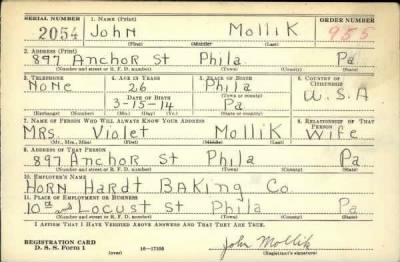 SERIAL NUMBER 1. NAME (Print) ORDER NUMBER
2054 John MolliK 955
(First) (Middle) (Last)
2. ADDRESS (Print)
897 Anchor St Phila Pa
(Number and street or R. F. D. number) (Town) (County) (State)
3. TELEPHONE 4. AGE IN YEARS 5. PLACE OF BIRTH 6. COUNTRY OF CITIZENSHIP
NoNe 26 Phila
(Town or county)
DATE OF BIRTH U.S.A
3-15-14 Pa
(Exchange) (Number) (Mo.) (Day) (Yr.) (State or country)
7. NAME OF PERSON WHO WILL ALWAYS KNOW YOUR ADDRESS 8. RELATIONSHIP OF THAT PERSON
MRS. Violet MolliK Wife
(Mr., Mrs., Miss) (First) (Middle) (Last)
9. ADDRESS OF THAT PERSON
897 Anchor St Phila Pa
(Number and street or R. F. D. number) (Town) (County) (State)
10. EMPLOYER'S NAME
HORN HARDT BAKING Co
11. PLACE OF EMPLOYMENT OR BUSINESS
10th and Locust St Phila Pa
(Number and street or R. F. D. number) (Town) (County) (State)
I AFFIRM THAT I HAVE VERIFIED ABOVE ANSWERS AND THAT THEY ARE TRUE.
REGISTRATION CARD
D. S. S. Form 1 (over) 16-17105 John Mollik